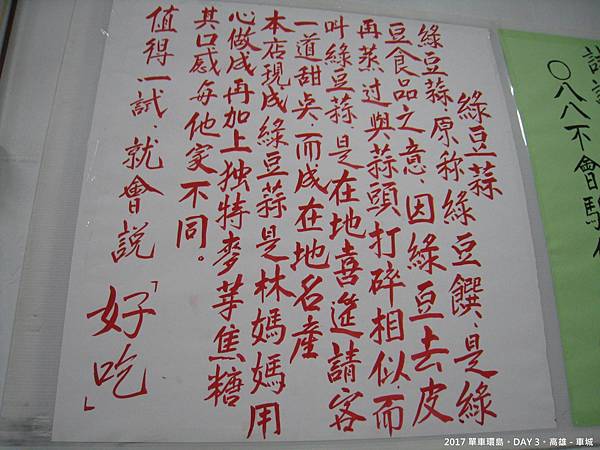 綠豆蒜
綠豆蒜原称綠豆饌,是綠
豆食品之意,因綠豆去皮
再蒸过與蒜頭打碎相似,而
叫綠豆蒜,是在地喜筵請客
一道甜点,而成在地名產
本店現成綠豆蒜是林媽媽用
心做成再加上独特麥芽焦糖
其口感每他家不同。
值得一試,就會說「好吃」
○八八不會騙
2017 單車環島・DAY 3・高雄 - 車城